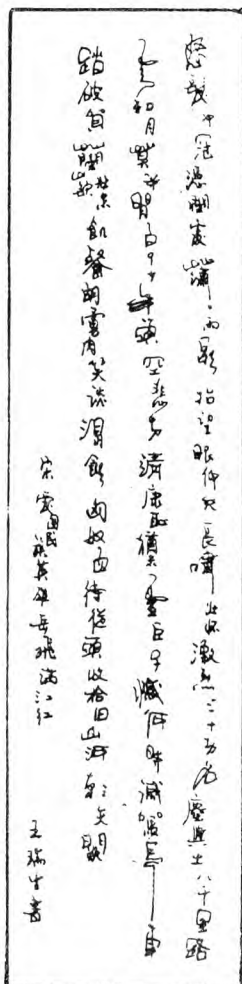 怒髮冲冠憑闌處瀟瀟雨歇抬望眼仰天長嘯壯懷激烈三十功名塵與土八千里路
雲和月莫等閒白了少年頭空悲切靖康恥猶未雪臣子憾何時滅駕長車
踏破賀蘭山缺壯志飢餐胡虜肉笑談渴飲匈奴血待從頭收拾旧山河朝天闕
宋愛國民族英雄岳飛滿江红
王瑞生書